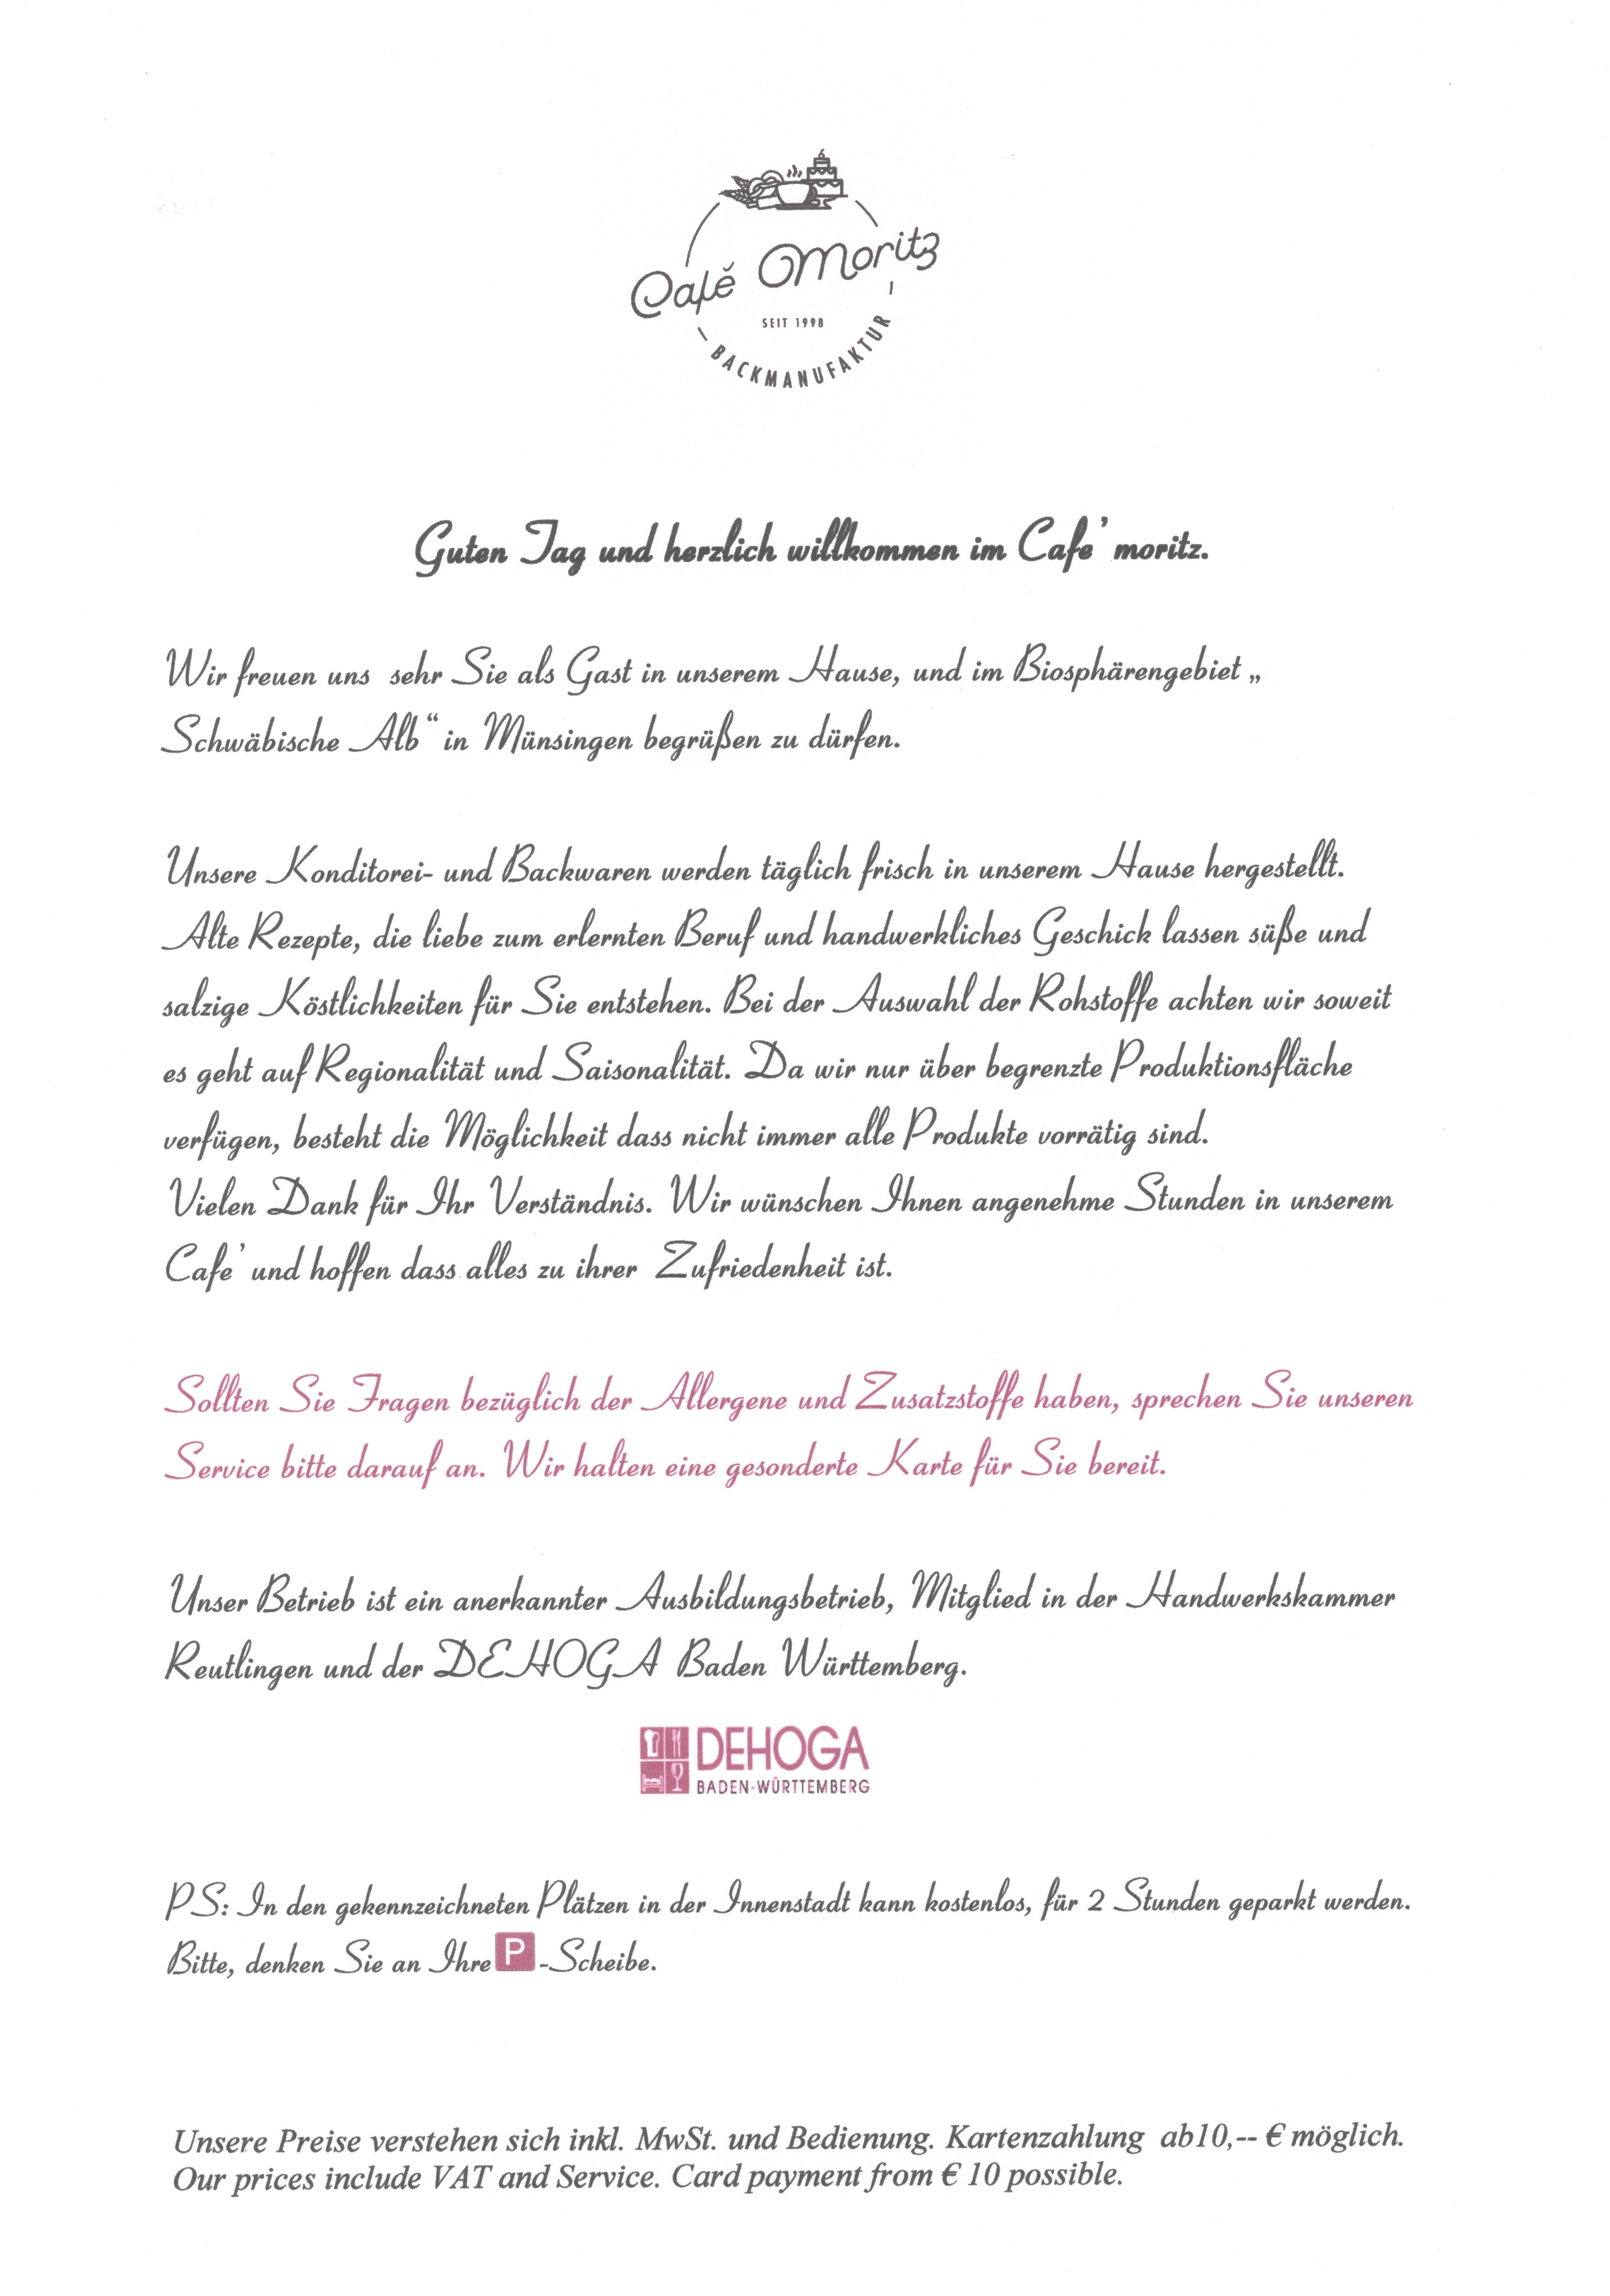 Café Moritz
SEIT 1998
BACKMANUFAKTUR
Guten Tag und herzlich willkommen im Cafe' moritz.
Wir freuen uns sehr Sie als Gast in unserem Hause, und im Biosphärengebiet „
Schwäbische Alb“ in Münsingen begrüßen zu dürfen.
Unsere Konditorei- und Backwaren werden täglich frisch in unserem Hause hergestellt.
Alte Rezepte, die liebe zum erlernten Beruf und handwerkliches Geschick lassen süße und
salzige Köstlichkeiten für Sie entstehen. Bei der Auswahl der Rohstoffe achten wir soweit
es geht auf Regionalität und Saisonalität. Da wir nur über begrenzte Produktionsfläche
verfügen, besteht die Möglichkeit dass nicht immer alle Produkte vorrätig sind.
Vielen Dank für Ihr Verständnis. Wir wünschen Ihnen angenehme Stunden in unserem
Cafe' und hoffen dass alles zu ihrer Zufriedenheit ist.
Sollten Sie Fragen bezüglich der Allergene und Zusatzstoffe haben, sprechen Sie unseren
Service bitte darauf an. Wir halten eine gesonderte Karte für Sie bereit.
Unser Betrieb ist ein anerkannter Ausbildungsbetrieb, Mitglied in der Handwerkskammer
Reutlingen und der DEHOGA Baden Württemberg.
DEHOGA
BADEN-WÜRTTEMBERG
PS: In den gekennzeichneten Plätzen in der Innenstadt kann kostenlos, für 2 Stunden geparkt werden.
Bitte, denken Sie an Ihre P -Scheibe.
Unsere Preise verstehen sich inkl. MwSt. und Bedienung. Kartenzahlung ab10,-- € möglich.
Our prices include VAT and Service. Card payment from € 10 possible.